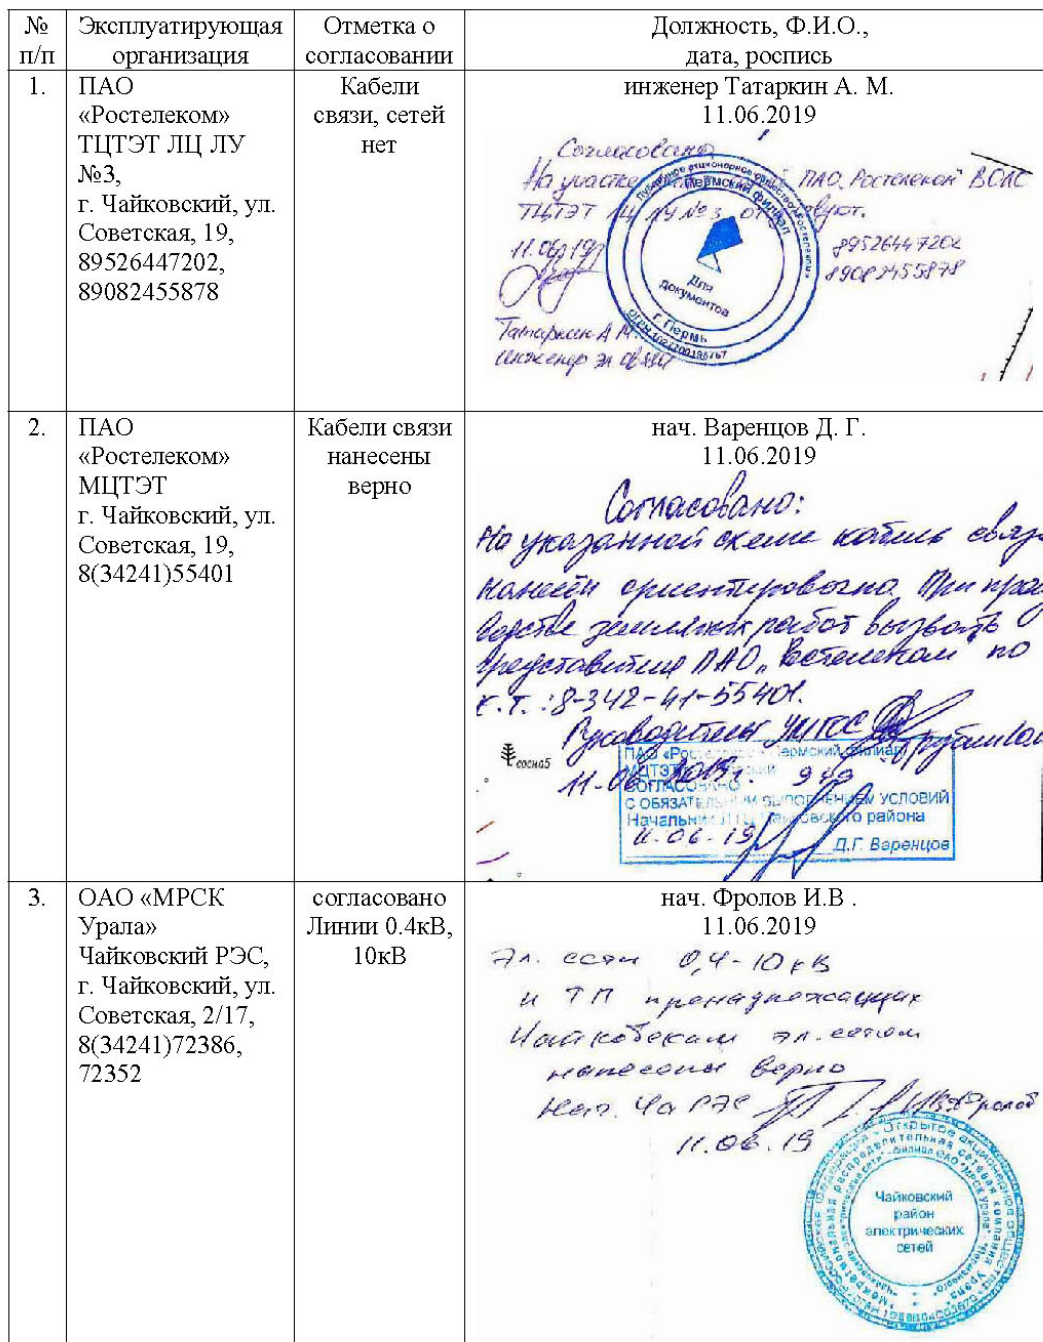 № п/п
Эксплуатирующая организация
Отметка о согласовании
Должность, Ф.И.О., дата, роспись
1.
ПАО
«Ростелеком»
ТЦТЭТ ЛЦ ЛУ
№3,
г. Чайковский, ул.
Советская, 19,
89526447202,
89082455878
Кабели
связи, сетей
нет
инженер Татаркин А. М.
11.06.2019
Согласовано
На участке ПАО "Ростелеком" ВОЛС
ТЦТЭТ ЛЦ ЛУ №3
11.06.19г
89526447202
89082455878
Татаркин А.М.
инженер эл. связи
Пермский филиал
Для
документов
г. Пермь
2.
ПАО
«Ростелеком»
МЦТЭТ
г. Чайковский, ул.
Советская, 19,
8(34241)55401
Кабели связи
нанесены
верно
нач. Варенцов Д. Г.
11.06.2019
Согласовано:
На указанной схеме кабель связи
нанесён ориентировочно. При произ
водстве земляных работ вызвать
представителя ПАО „Ростелеком" по
к.т.: 8-342-41-55401.
Руководитель
11-06-2019г.
сосна5
СОГЛАСОВАНО
С ОБЯЗАТЕЛЬНЫМ ВЫПОЛНЕНИЕМ УСЛОВИЙ
Начальник ЛТЦ Чайковского района
11.06.19
Д.Г. Варенцов
3.
ОАО «МРСК
Урала»
Чайковский РЭС,
г. Чайковский, ул.
Советская, 2/17,
8(34241)72386,
72352
согласовано
Линии 0.4кВ,
10кВ
нач. Фролов И.В .
11.06.2019
Эл. сети 0,4-10кВ
и ТП принадлежащих
Чайковским эл. сетям
нанесены верно
Нач. Ча РЭС И.В. Фролов
11.06.19
Чайковский
район
электрических
сетей